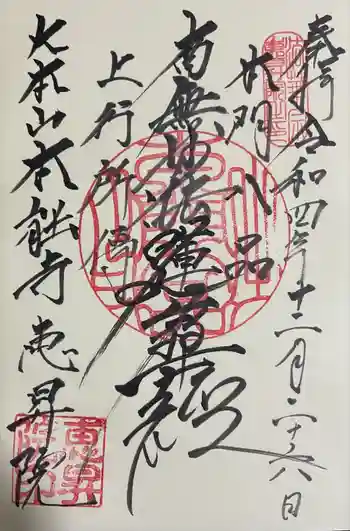 奉拝 令和四年十二月二十八日
本門八品
南無妙法蓮華経
上行所傳
大本山本能寺 恵昇院